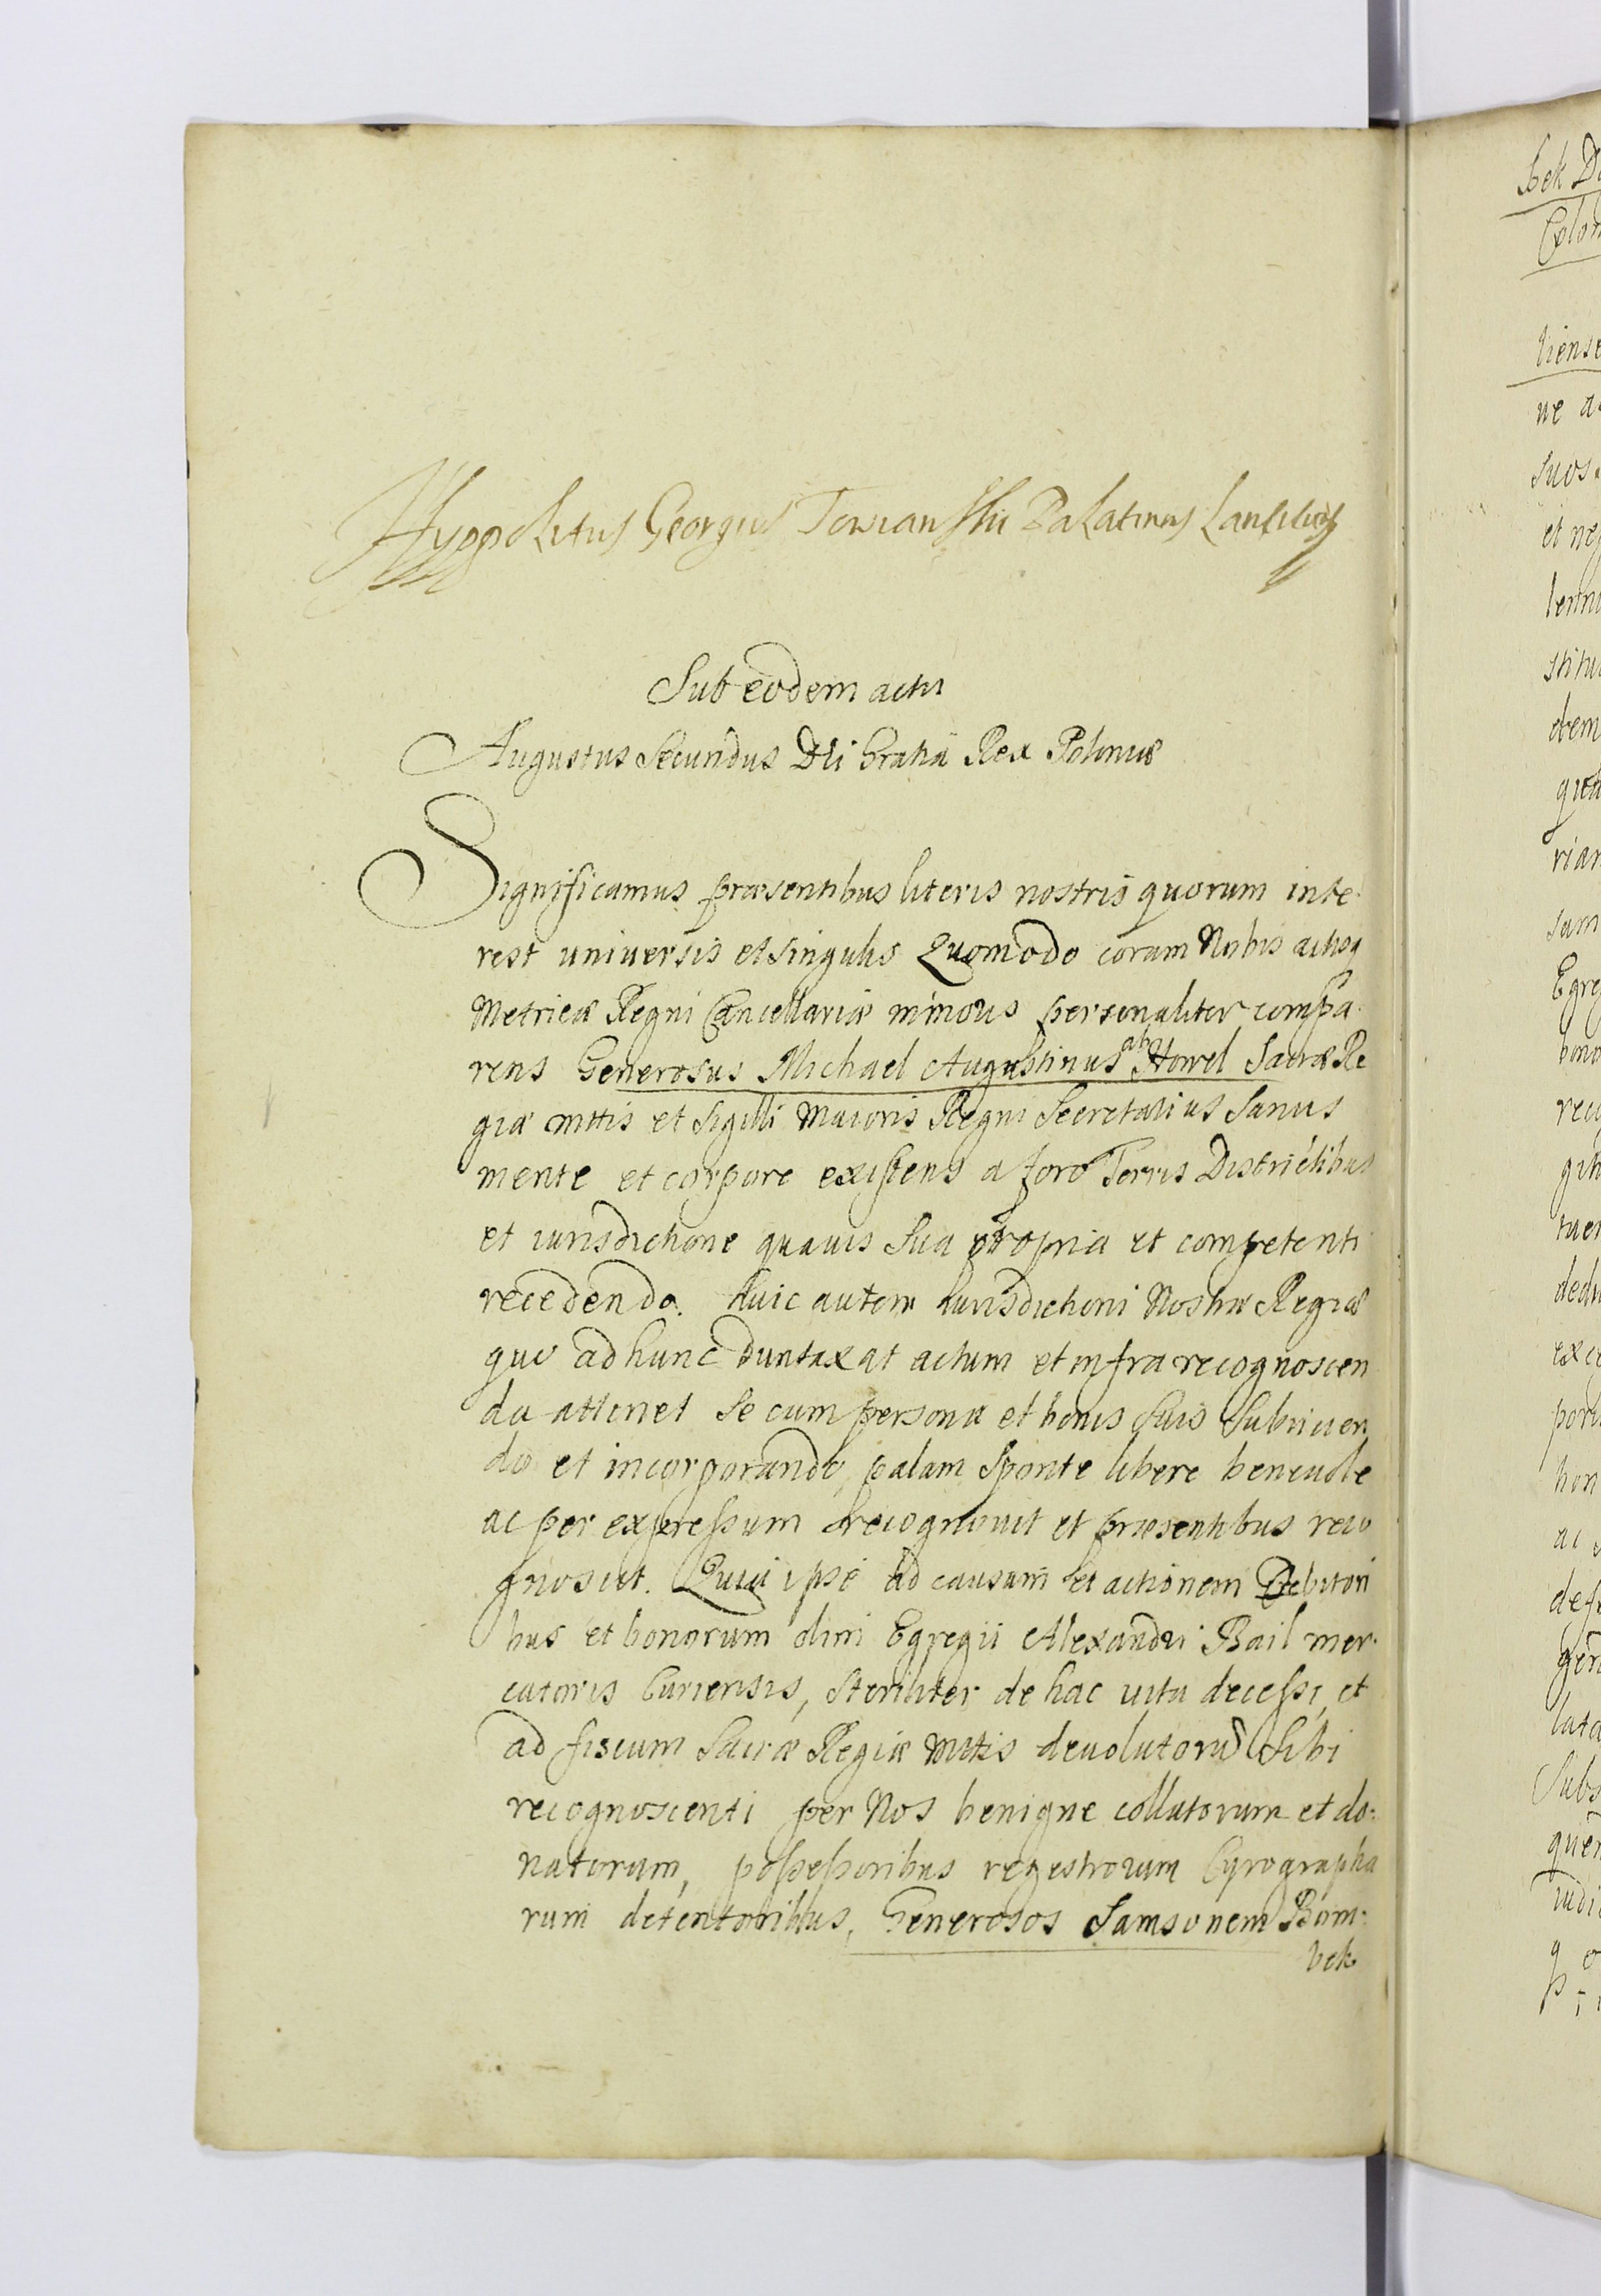 Hyppolitus Georgius Towianskii Palatinus Lancicien
Sub eodem actu
Augustus Secundus Dei Gratia Rex Poloniæ
Significamus præsentibus literis nostris quorum inte-
rest universis et singulis Quomodo coram Nobis actisq
Metricæ Regni Cancellariæ minoris personaliter compa-
rens Generosus Michael Augustinus ab Howel Sacræ Re
giæ mttis et Sigilli Maioris Regni Secretarius Sanus
mente et corpore existens a foro Terris Districtibus
et iurisdictione quavis sua propria et competenti
recedendo. huic autem iurisdictioni Nostræ Regiæ
quo ad hunc duntaxat actum et infra recognoscen
da attinet se cum persona et bonis suis subiicien
do et incorporando, palam sponte libere benevole
ac per expressum recognovit et præsentibus reco
gnoscit. Quia ipse ad causam et actionem Debitori
bus et bonorum olim Egregii Alexandri Bail mer-
catoris Curiensis, steriliter de hac vita decessi, et
ad fiscum Sacræ Regiæ Mttis devolutoru Sibi
recognoscenti per Nos benigne collatorum et do-
natorum, possessoribus regestrorum Cyrographa
rum detentoribus, Generosos Samsonem Bom-
bek
bek
tiense
ne
suos
et ne
stitu
dem
riam
sam
Egre
bono
reco
tuer
dedu
exce
ac
def
gen
lata
Subs
quem
iudi